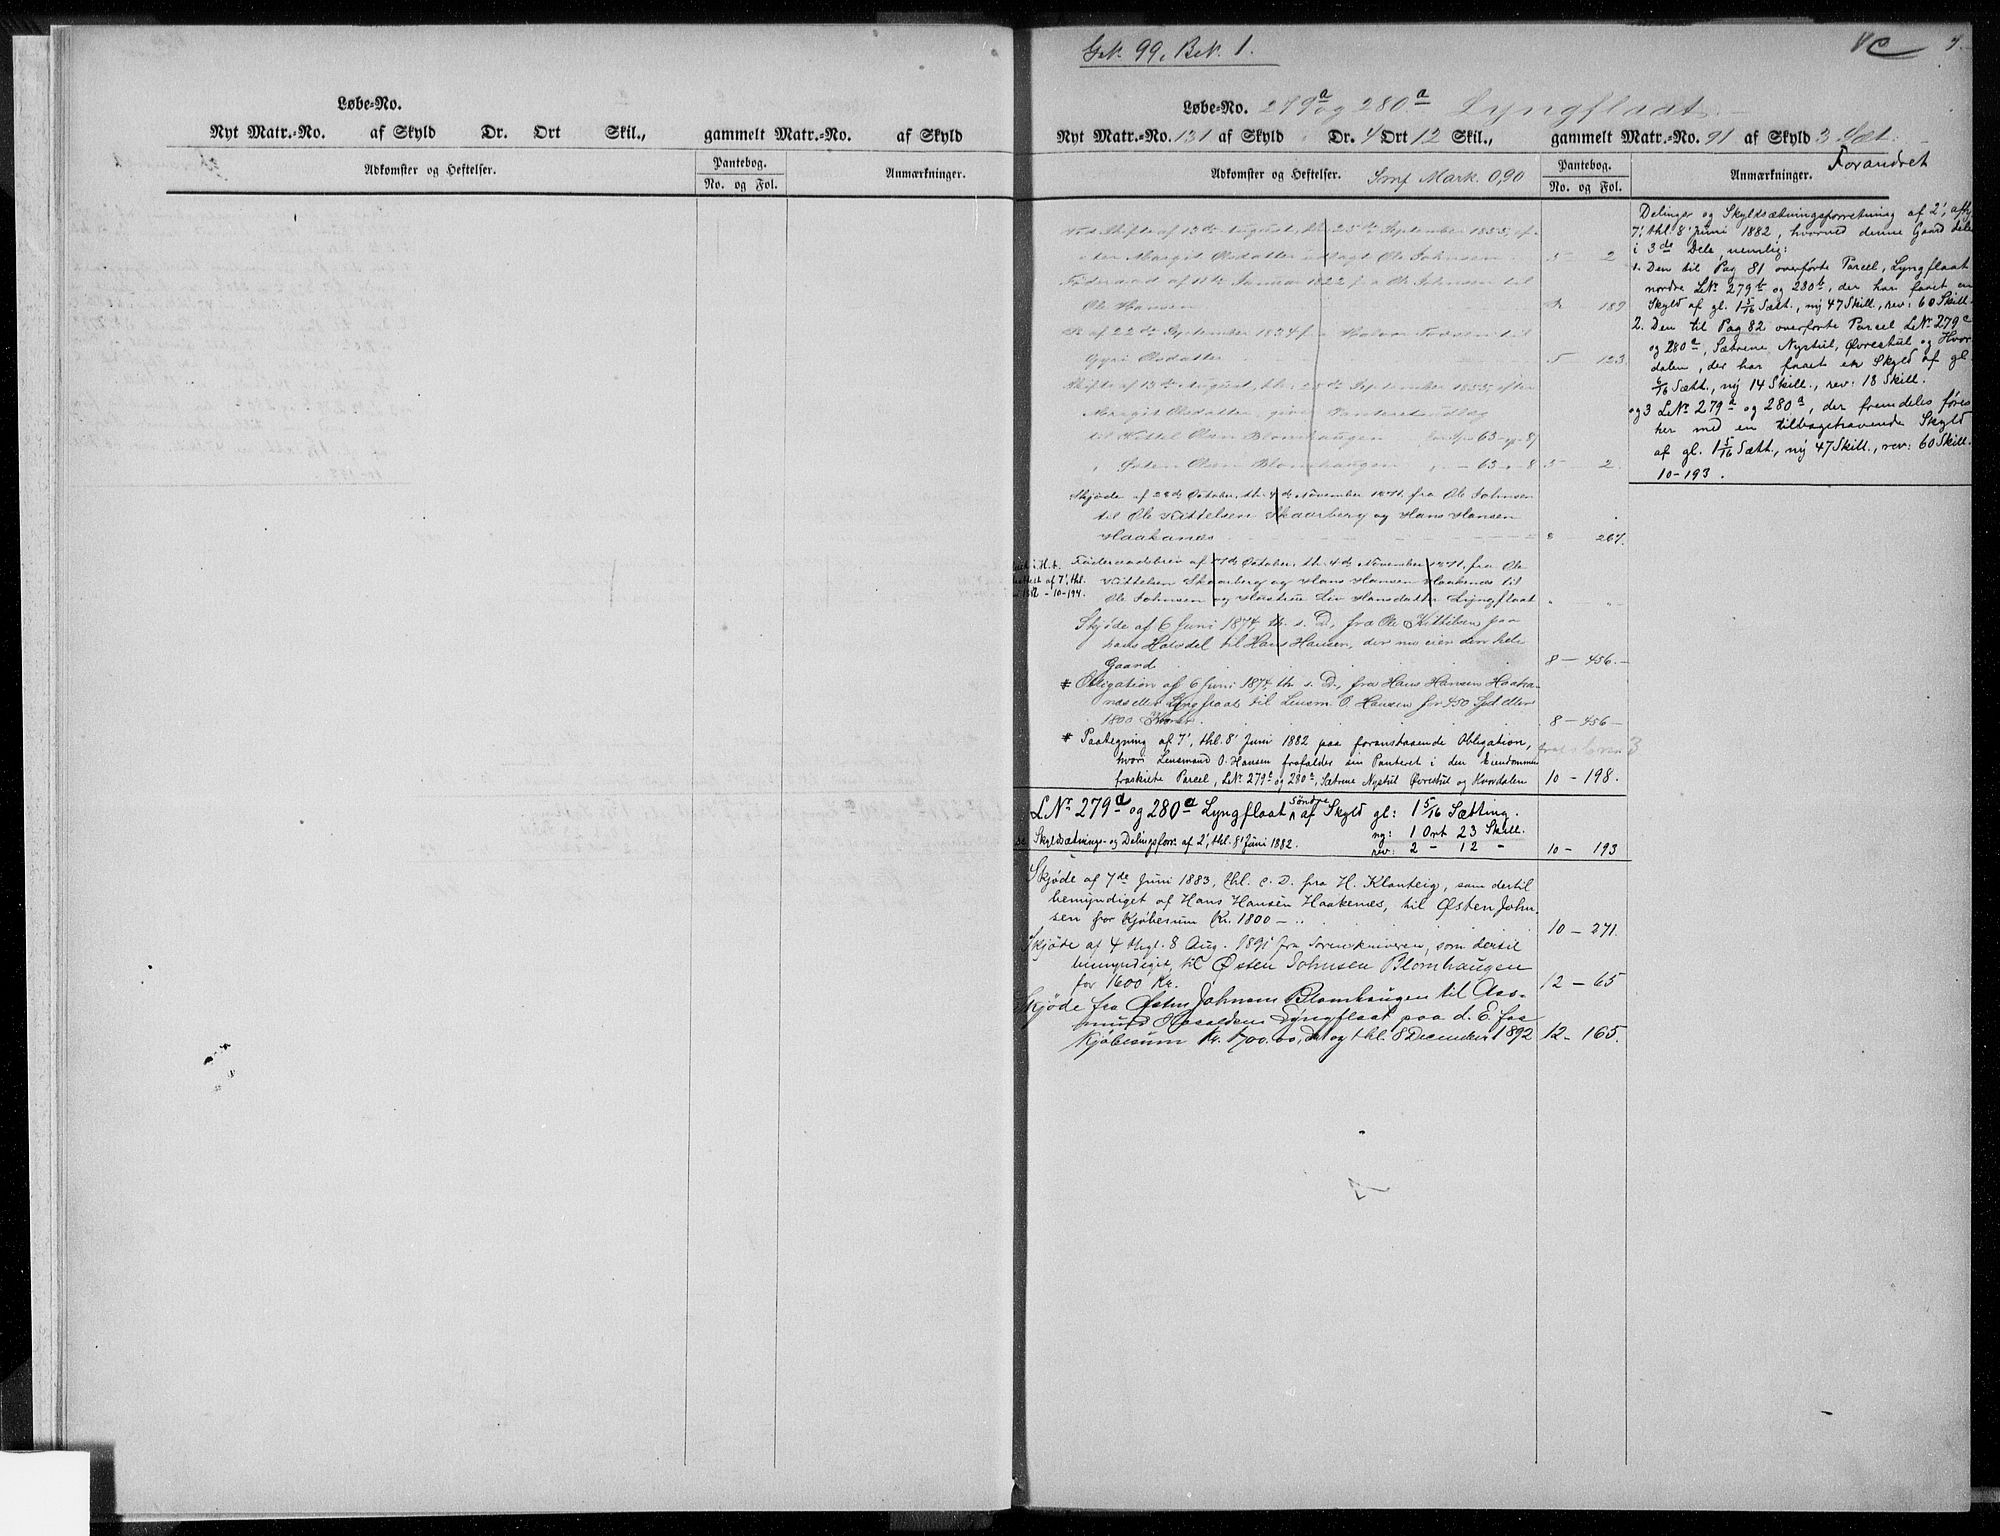 Løbe=No.
Nyt Matr.=No. af Skyld Dr. Ort Skil., gammelt Matr.=No. af Skyld
Adkomster og Heftelser. Pantebog. Anmærkninger.
No. og Fol.
Gak. 99, Bek. 1.
Løbe=No. 279a og 280a Lyngflaat
Nyt Matr.=No. 131 af Skyld Dr. 4 Ort 12 Skil., gammelt Matr.=No. 91 af Skyld 3 Sæt.
Adkomster og Heftelser. Mark. 0,90 Pantebog. Anmærkninger. Forandret
No. og Fol.
Skifte af 13de August, th. 25de September 1853, ef-
ter Margit Olsdatter udlagt Ole Johnsen 5 2
Føderaad af 11te Januar 1822 fra Ole Johnsen til
Ole Hansen 189
af 22de September 1834 fra Halvor til
Gyri Olsdatter 5 123.
Skifte af 13de August, th. 25de September 1853, efter
Margit Olsdatter, giver Panteretudlæg
til Kittel Olsen Blomhaugen for 63
" Østen Olsen Blomhaugen " – 63 – 8 5 2.
Skjøde af 28de October, th. 4de November 1871, fra Ole Johnsen
til Ole Kittelsen Skaarberg og Hans Hansen
Haakanes 8 267.
Føderaadsbrev af October, th. 4de November 1871, fra Ole
Kittelsen Skaarberg og Hans Hansen Haakenes til
Ole Johnsen og Hustrue Liv Hansdatter Lyngflaat " – "
af 7', thl.
1882 – 10-194.
Skjøde af 6 Juni 1874, th. s. D., fra Ole Kittilsen paa
hans Halvdel til Hans Hansen, der nu eier den hele
Gaard. 8 – 456.–
# Obligation af 6 Juni 1874, th. s. D., fra Hans Hansen Haaka-
nes eller Lyngflaat til Lensm. O. Hansen for 450 Spd eller
1800 Kroner. 8 – 456 –
# Paategning af 7', thl. 8' Juni 1882 paa foranstaaende Obligation,
hvori Lensmand O. Hansen frafaldes sin Panteret i den Eiendommen
fraskilte Parcel, LNr. 279c og 280a, Sætrene Nystul Øvrestul og Hvordalen 10 – 198.
LNr. 279a og 280a Lyngflaat søndre af Skyld gl: 1 5/16 Sætting.
ny: 1 Ort 23 Skill.
Skyldsætnings- og Delingsforr. af 2', thl. 8' Juni 1882. rev: 2 – 12 – 10 – 193
Skjøde af 7de Juni 1883, thl. s. D. fra H. Klonteig, som dertil
bemyndiget af Hans Hansen Haakenes, til Østen John-
sen for Kjøbesum Kr. 1800 – 10 – 271.
Skjøde af 4 thgl. 8 Aug. 1891 fra Sorenskriveren, som dertil
bemyndiget, til Østen Johnsen Blomhaugen
for 1600 Kr. 12 – 65
Skjøde fra Østen Johnsens Blomhaugen til Aas-
mund Lyngflaat paa d. E. for
Kjøbesum Kr. 1700.00, dat og thl. 8 December 1892 12 – 165.
Delings og Skyldsætningsforretning af 2', afhj
7', thl 8' Juni 1882, hvorved denne Gaard deles
i 3de Dele, nemlig:
1. Den til Pag 81 overførte Parcel, Lyngflaat
nordre LNr. 279b og 280b, der har faaet en
Skyld af gl. 1 5/16 Sætt., ny 47 Skill., rev: 60 Skill.
2. Den til Pag 82 overførte Parcel LNr. 279c
og 280a, Sætrene Nystul, Øvrestul og Hvor-
dalen, der har faaet en Skyld af gl.
6/16 Sætt., ny 14 Skill., rev: 18 Skill.
og 3 LNr. 279a og 280a, der fremdeles føres
her med en tilbageværende Skyld
af gl. 1 5/16 Sætt., ny 47 Skill., rev: 60 Skill.
10 – 193.